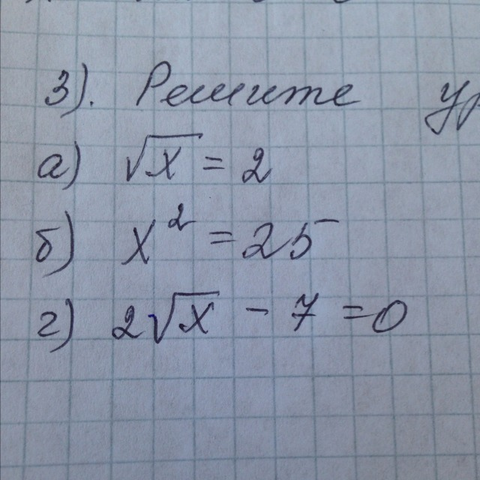 3). Решите
а) √x = 2
б) x² = 25
г) 2√x - 7 = 0